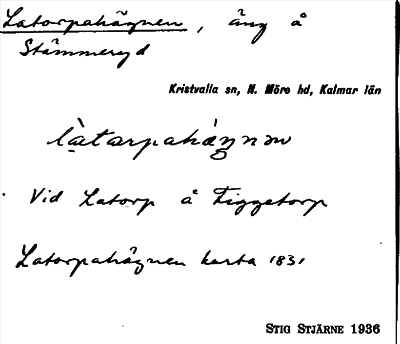 Latorpahägnen, äng å
Stämmeryd
Kristvalla sn, N. Möre hd, Kalmar län
Vid Latorp å Tiggetorp
Latorpahägnen karta 1831
STIG STJÄRNE 1936